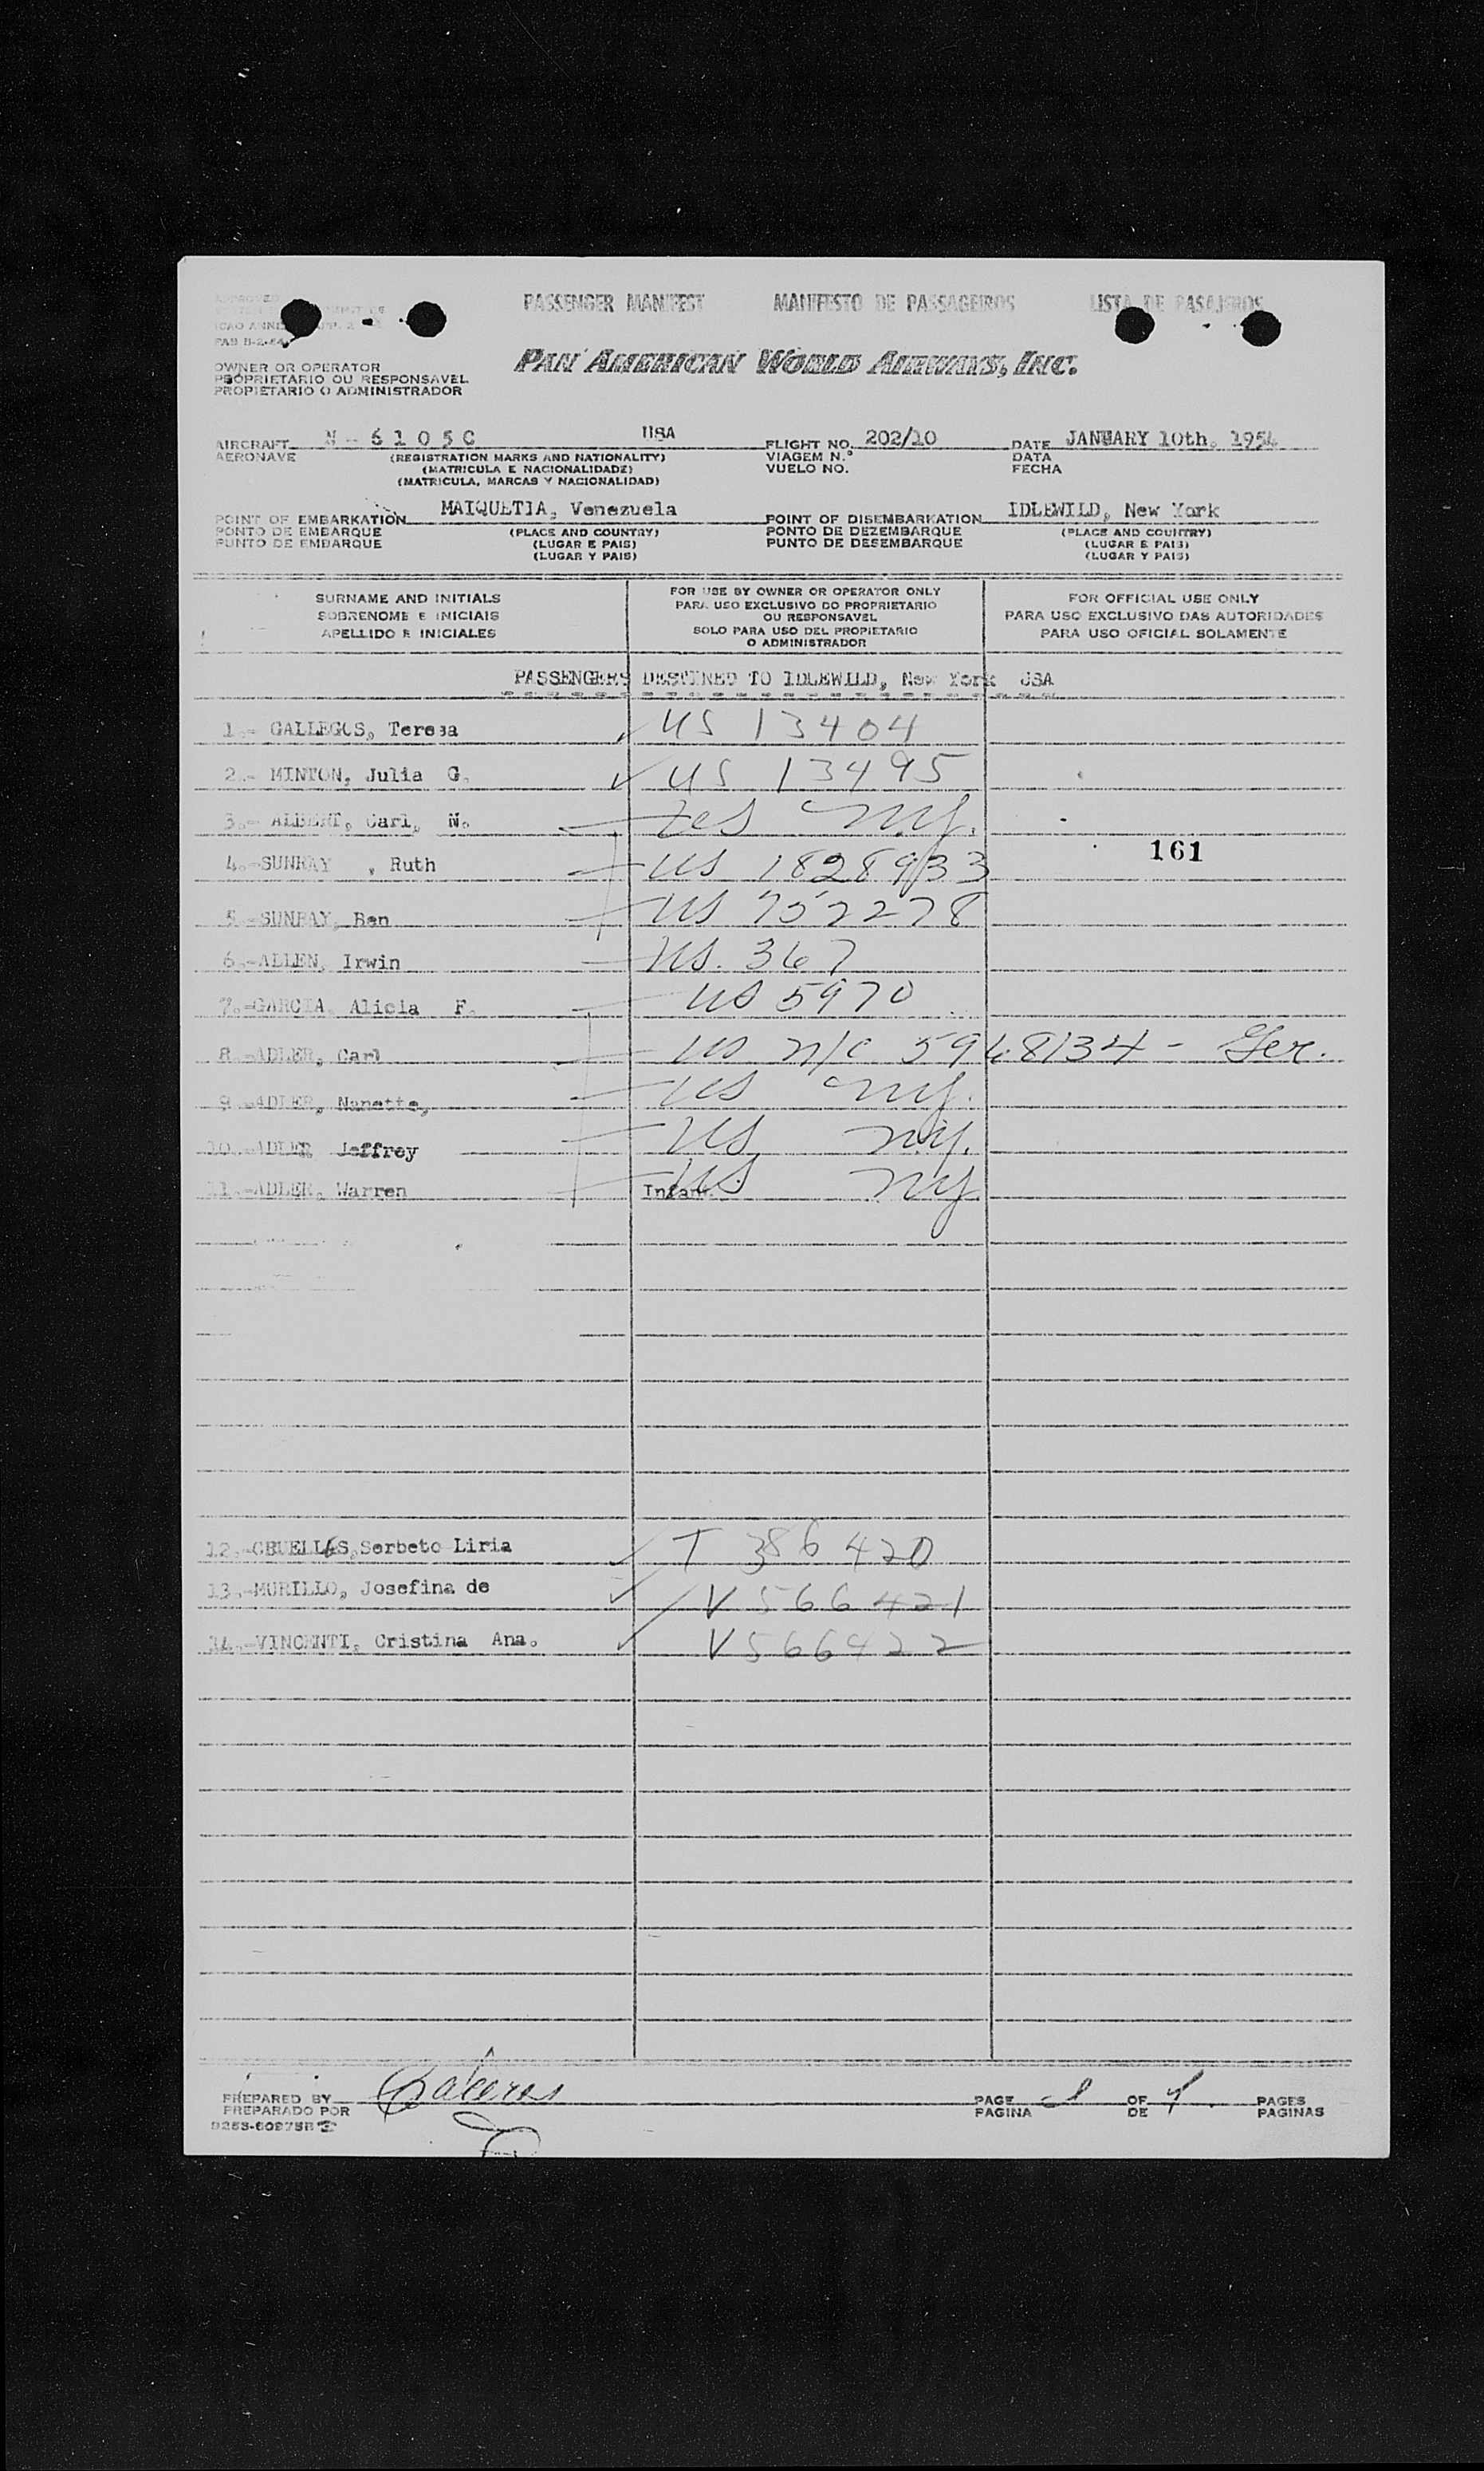 PASSENGER MANIFEST MANIFESTO DE PASSAGEIROS LISTA DE PASAJEROS
PAN AMERICAN WORLD AIRWAYS, INC.
OWNER OR OPERATOR
PROPRIETARIO OU RESPONSAVEL
PROPIETARIO O ADMINISTRADOR
AIRCRAFT N - 6 1 0 5 C USA FLIGHT NO. 202/10 DATE JANUARY 10th, 1954
AERONAVE (REGISTRATION MARKS AND NATIONALITY) VIAGEM N.º DATA
(MATRICULA E NACIONALIDADE) VUELO NO. FECHA
(MATRICULA, MARCAS Y NACIONALIDAD)
POINT OF EMBARKATION MAIQUETIA, Venezuela POINT OF DISEMBARKATION IDLEWILD, New York
PONTO DE EMBARQUE (PLACE AND COUNTRY) PONTO DE DEZEMBARQUE (PLACE AND COUNTRY)
PUNTO DE EMBARQUE (LUGAR E PAIS) PUNTO DE DESEMBARQUE (LUGAR E PAIS)
(LUGAR Y PAIS) (LUGAR Y PAIS)
SURNAME AND INITIALS
SOBRENOME E INICIAIS
APELLIDO E INICIALES
FOR USE BY OWNER OR OPERATOR ONLY
PARA USO EXCLUSIVO DO PROPRIETARIO
OU RESPONSAVEL
SOLO PARA USO DEL PROPIETARIO
O ADMINISTRADOR
FOR OFFICIAL USE ONLY
PARA USO EXCLUSIVO DAS AUTORIDADES
PARA USO OFICIAL SOLAMENTE
PASSENGERS DESTINED TO IDLEWILD, New York USA
1.- GALLEGOS, Teresa US 13404
2.- MINTON, Julia G. US 13495
3.- ALBERT, Carl, N. US NY.
161
4.-SUNRAY , Ruth US 1828933
5.-SUNRAY, Ben US 752278
6.-ALLEN, Irwin US. 367
7.-GARCIA, Alicia F. US 5970
8.-ADLER, Carl US n/c 5948134 - Ger.
9.-ADLER, Nanette, US NY.
10.-ADLER Jeffrey US NY.
11.-ADLER, Warren Infant US NY
12.- Serbeto Liria T 386420
13.-MURILLO, Josefina de V 566421
14.-VINCENTI, Cristina Ana. V 566422
PREPARED BY PAGE 1 OF PAGES
PREPARADO POR PAGINA DE PAGINAS